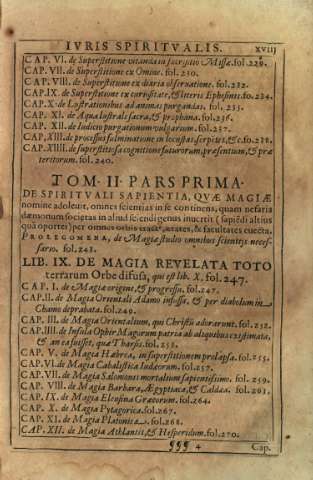 IVRIS SPIRITVALIS. xviij
CAP. VI. de Superstitione vitanda in sacrificio Missæ. fol. 229.
CAP. VII. de Superstitione ex Omine. fol. 230.
CAP. VIII. de Superstitione ex diaria obseruatione. fol. 232.
CAP. IX. de Superstitione ex curiositate, & literis Ephesinis. fo. 234.
CAP. X. de Lustrationibus ad animas purgandas. fol. 235.
CAP. XI. de Aqua lustrali sacra, & prophana. fol. 236.
CAP. XII. de Iudicio purgationum vulgarium. fol. 237.
CAP. XIII. de processu fulminatione in locustas serpētes, &c. fo. 238.
CAP. XIIII. de superstitiosa cognitione futurorum, præsentium, & præ
teritorum. fol. 240.
TOM. II. PARS PRIMA.
DE SPIRITVALI SAPIENTIA, QVÆ MAGIÆ
nomine adoleuit, omnes scientias in se continens, quam nefaria
dæmonum societas in aliud sciendi genus inuertit (sapiēdi altius
quā oportet) per omnes orbis ætates, & facultates cuncta.
PROLEGOMENA, de Magiæ studio omnibus scientijs neces-
sario. fol. 243.
LIB. IX. DE MAGIA REVELATA TOTO
terrarum Orbe difusa, qui est lib. X. fol. 247.
CAP. I. de Magiæ origine, & progressu. fol. 247.
CAP. II. de Magia Orientali Adamo infusa, & per diabolum in
Chamo deprabata. fol. 249.
CAP. III. de Magia Orientalium, qui Christū adorarunt. fol. 252.
CAP. IIII. de Insula Ophir Magorum patria ab aliquibus existimata,
& an ea fuisset, quæ Tharsis. fol. 253.
CAP. V. de Magia Hæbrea, in superstitionem prolapsa. fol. 255.
CAP. VI. de Magia Cabalistica Iudæorum. fol. 257.
CAP. VII. de Magia Salomonis mortalium sapientissimo. fol. 259.
CAP. VIII. de Magia Barbara, Ægyptiaca, & Caldæa. fol. 263.
CAP. IX. de Magia Eleusina Græcorum. fol. 264.
CAP. X. de Magia Pytagorica. fol. 267.
CAP. XI. de Magia Platonica. fol. 268.
CAP. XII. de Magia Athlantis, & Hesperidum. fol. 270.
4 Cap.